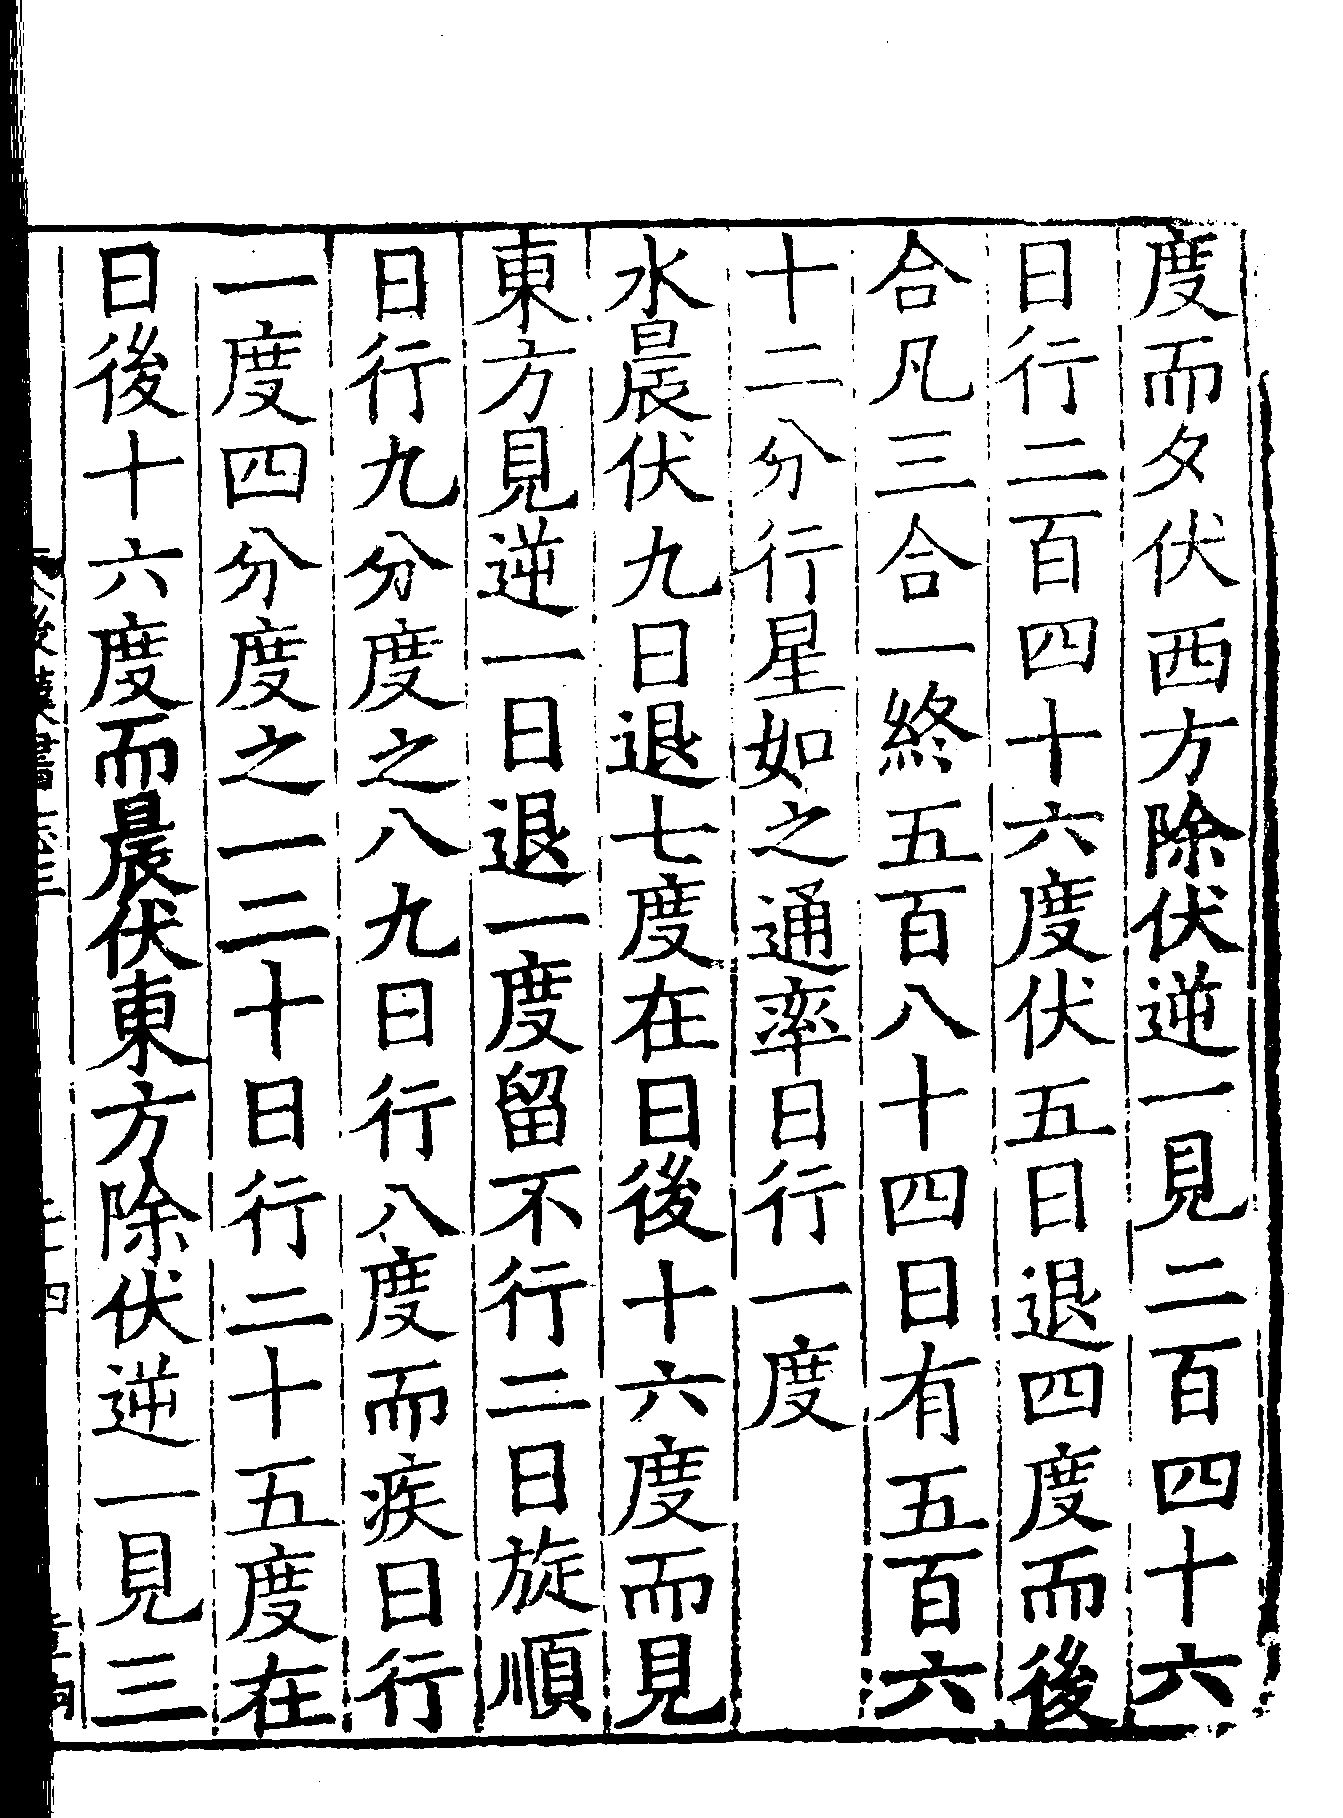 度而夕伏西方除伏逆一見二百四十六
日行二百四十六度伏五日退四度而後
合凡三合一終五百八十四日有五百六
十二分行星如之通率日行一度
水晨伏九日退七度在日後十六度而見
東方見逆一日退一度留不行二日旋順
日行九分度之八九日行八度而疾日行
一度四分度之一二十日行二十五度在
日後十六度而晨伏東方除伏逆一見三